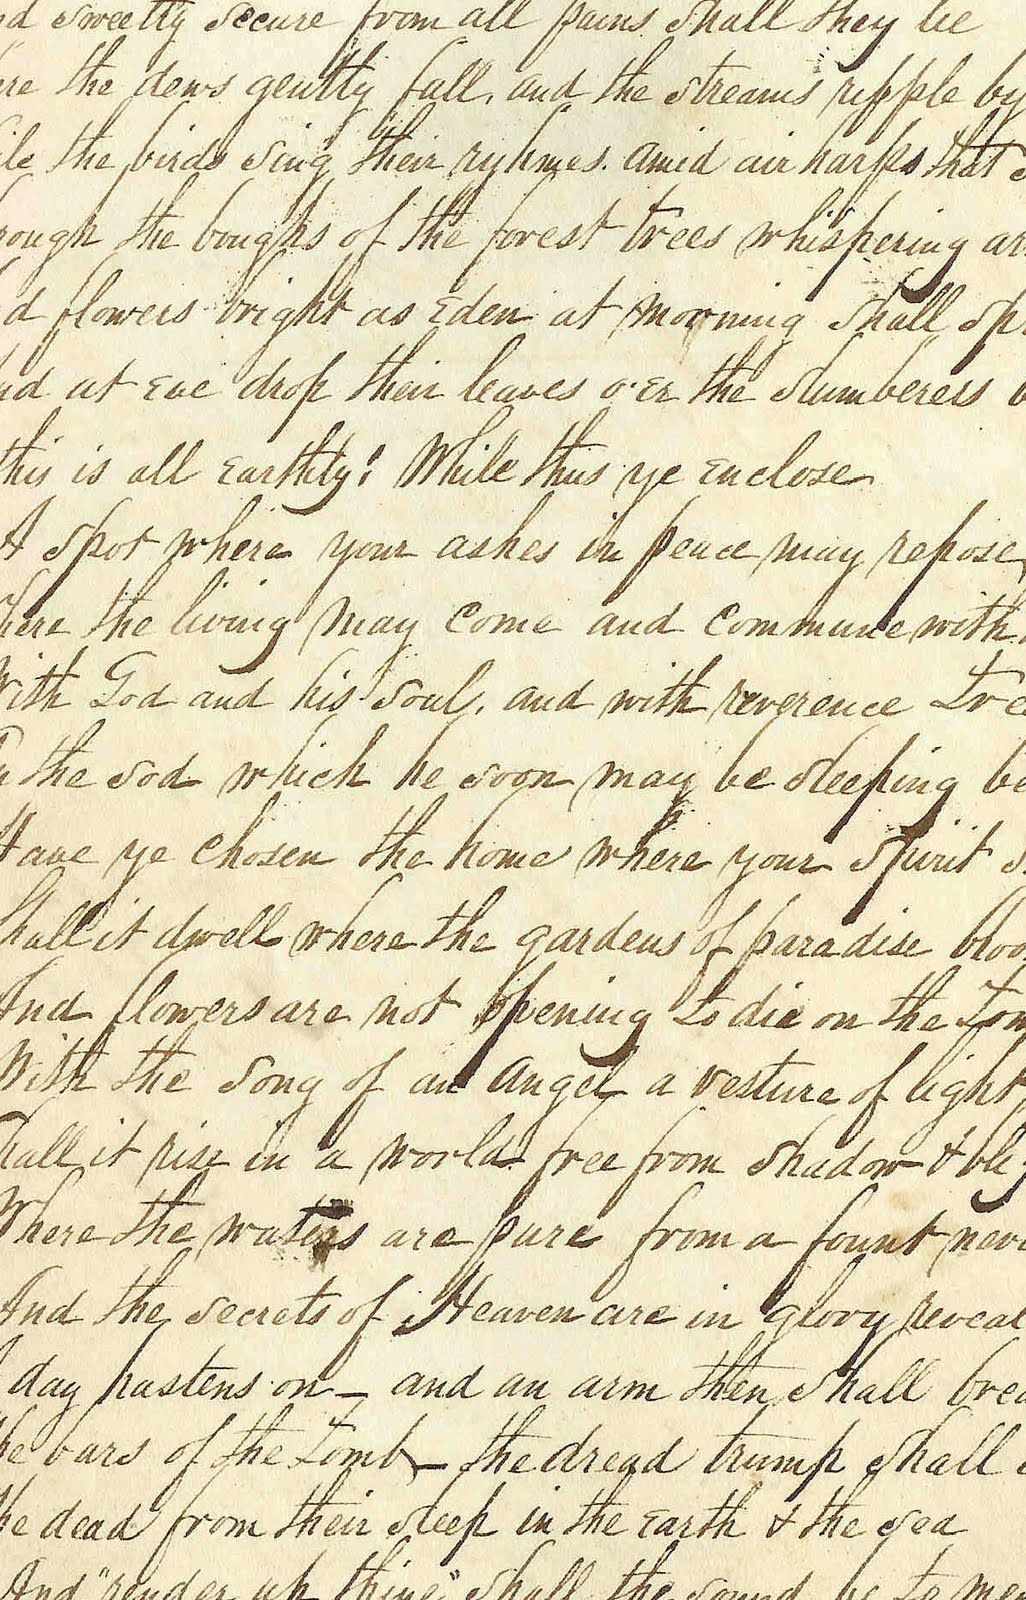 nd sweetly secure from all pains shall they be
ere the dews gently fall, and the streams ripple by
ile the birds sing their ryhmes. amid air harps that s
rough the boughs of the forest trees whispering ar
d flowers bright as Eden at morning shall sp
nd at Eve drop their leaves o'er the slumberers b
this is all Earthly! While thus ye Enclose
A spot where your ashes in peace may repose,
here the living may come and commune with
With God and his soul, and with reverence tre
n the sod which he soon may be sleeping be
Have ye chosen the home where your spirit s
Shall it dwell where the gardens of paradise bloo
And flowers are not opening to die on the tom
With the song of an angel a vesture of light,
hall it rise in a world free from shadow & bli
Where the waters are pure from a fount neve
And the secrets of Heaven are in glory reveal
day hastens on — and an arm then shall brea
he bars of the Tomb — the dread trump shall
he dead from their sleep in the Earth & the sea
And "render up thine" shall the sound